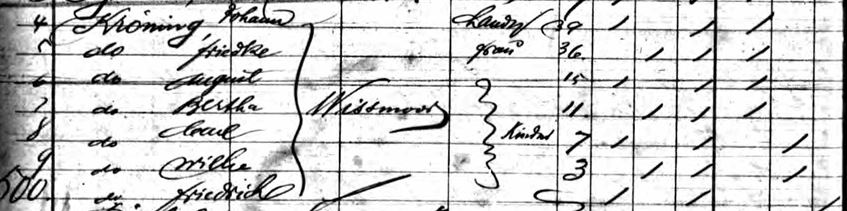 4 Kröning, Johann Landm 39 / / /
5 do Friedke Frau 36 / / /
6 do August 15 / / /
7 do Bertha Wissmoor 11 / / /
8 do Carl Kinder 7 / / /
9 do Wilhe 3 / / /
500 do Friedrich / / /